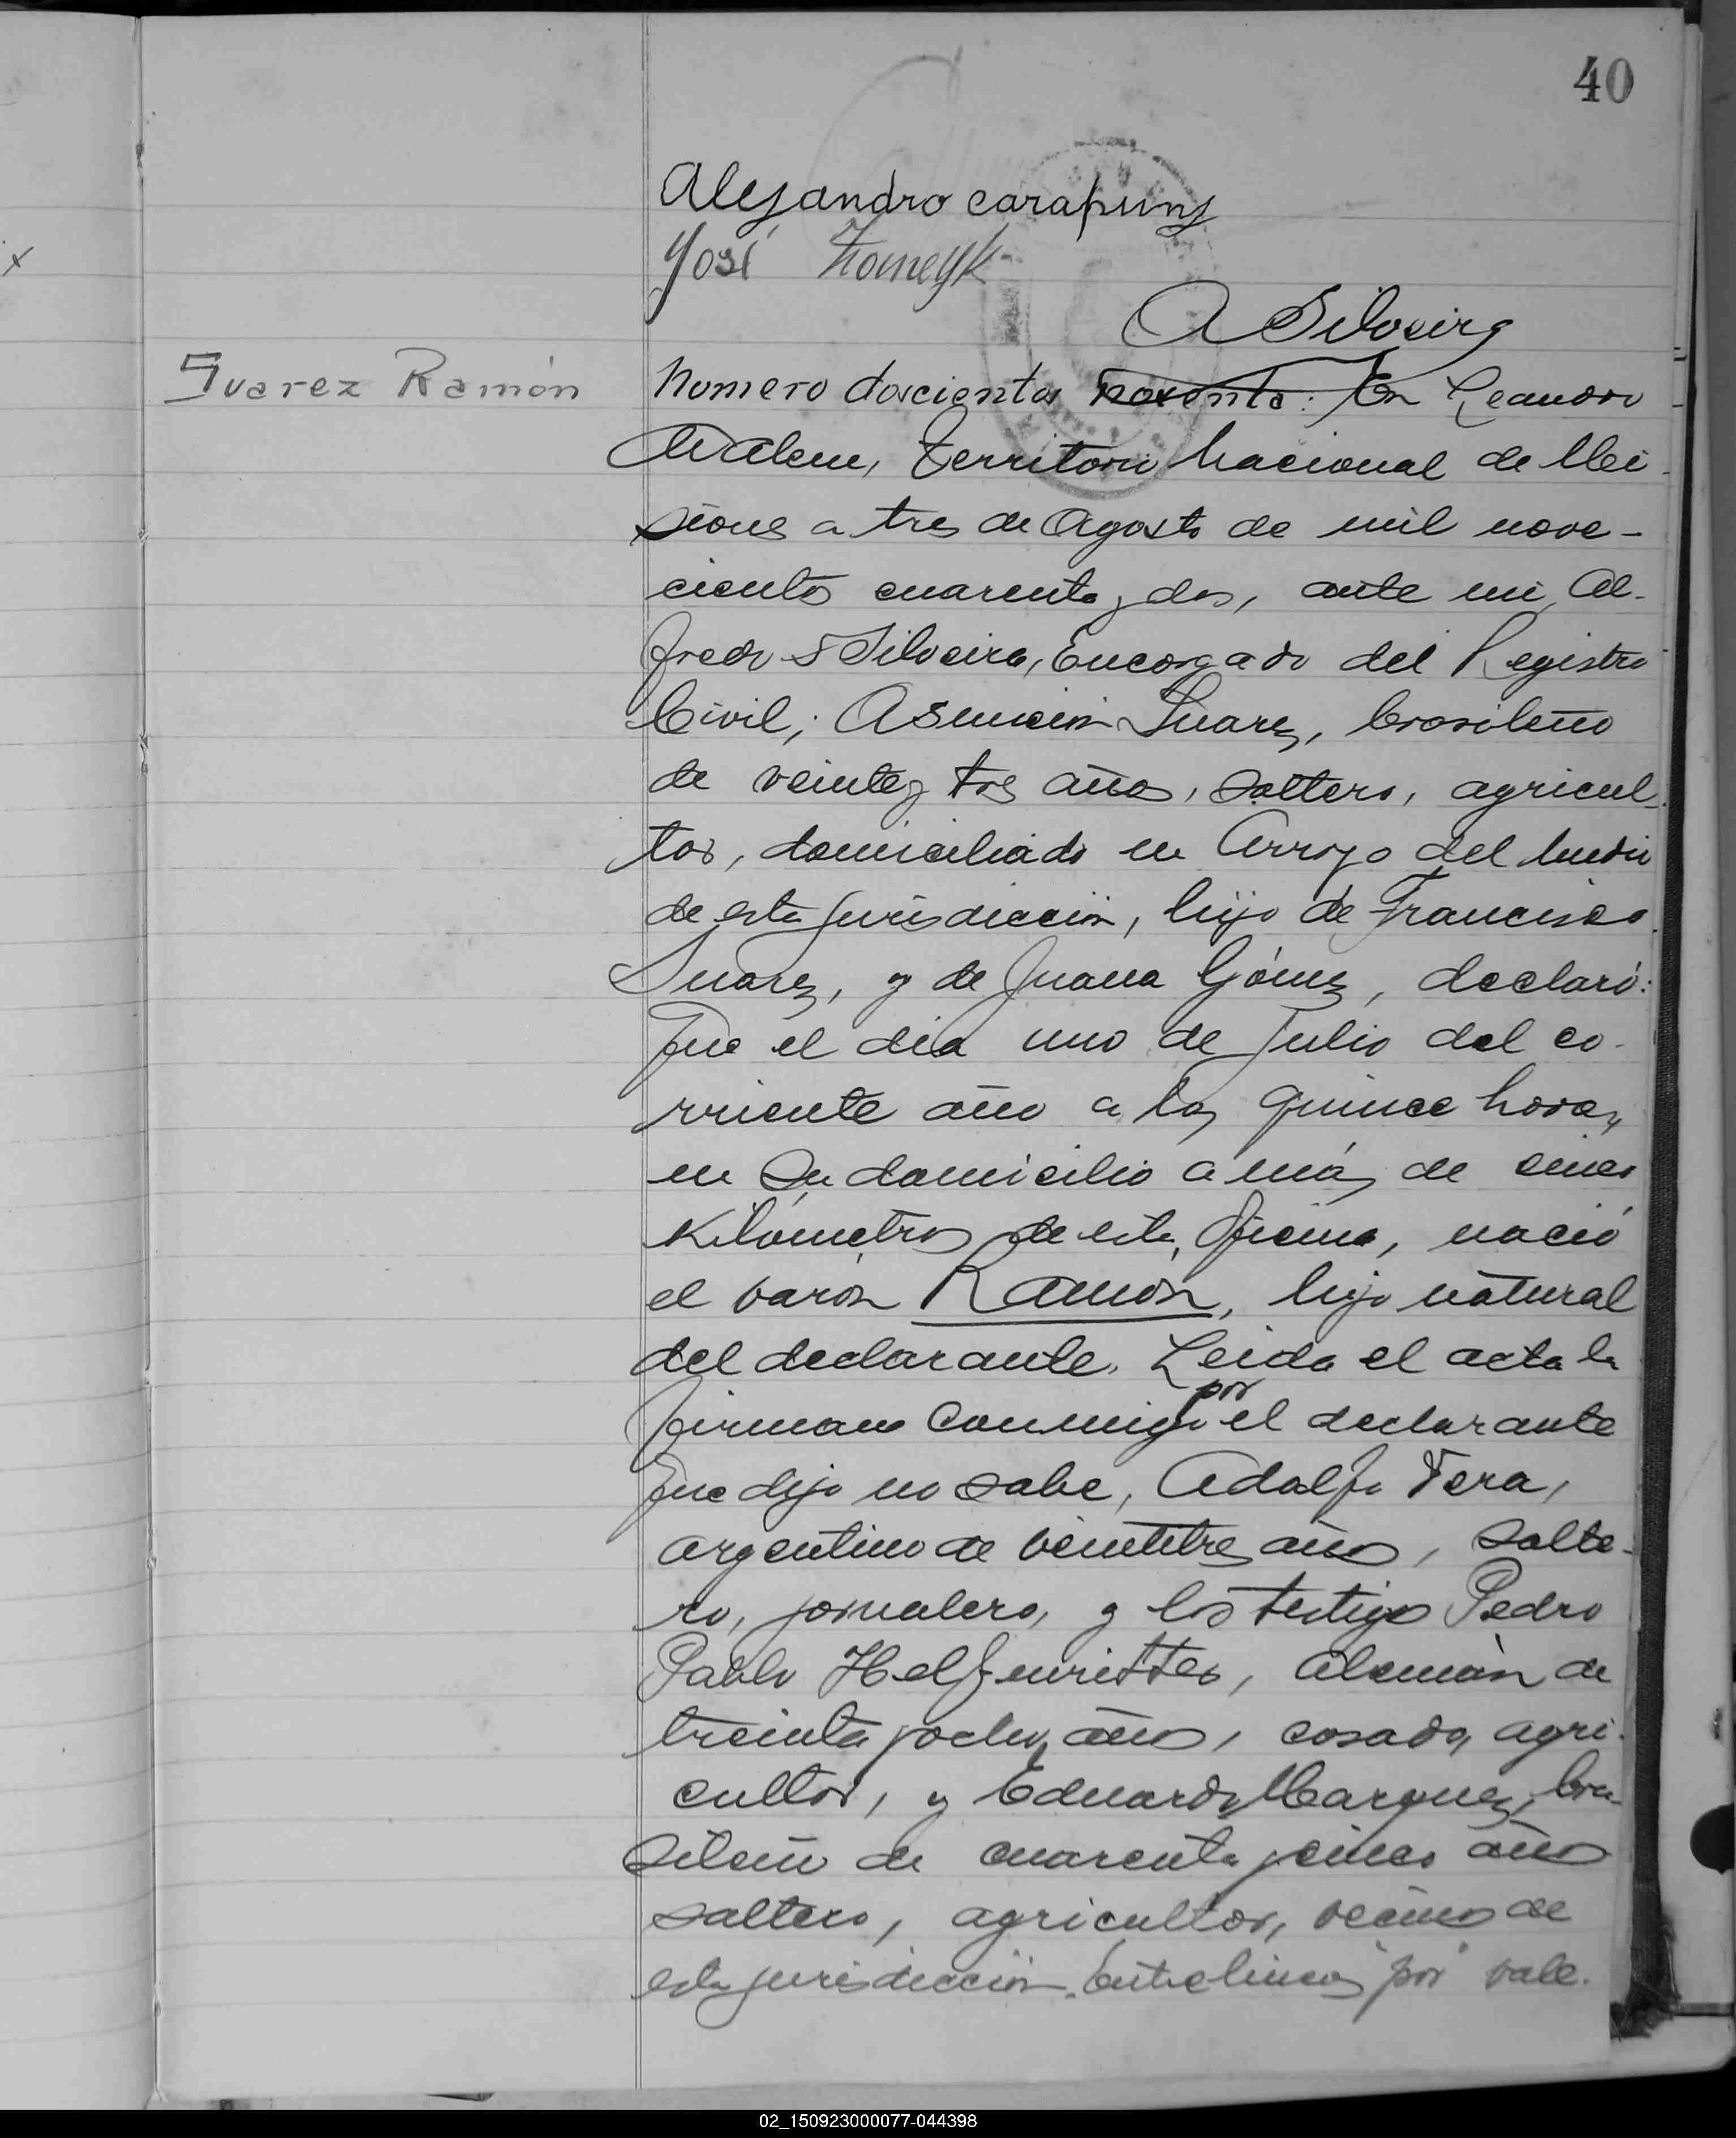 40
Alejandro carapuns
José
A Silveira
Suarez Ramón
Nomero doscientos noventa: En Leandro
N Alem, Territorio Nacional de Mi
siones a tres de Agosto de mil nove-
cientos cuarenta y dos, ante mi, Al-
fredo S Silveira, Encargado del Registro
Civil; Asunción Suarez, brasileño
de veinte y tres años, soltero, agricul-
tor, domiciliado en Arroyo del Medio
de esta jurisdicción, hijo de Francisco
Suarez, y de Juana Gómez, declaró:
Que el dia uno de Julio del co-
rriente año a las quince horas,
en su domicilio a más de cinco
Kilómetros de esta Oficina, nació
el varón Ramón, hijo natural
del declarante. Leida el acta la
firman conmigo por el declarante
que dijo no sabe, Adolfo Vera,
argentino de veintitres años, solte-
ro, jornalero, y los testigos Pedro
Pablo Helfenritter, Alemán de
treinta y ocho años, casado, agri-
cultor, y Eduardo Marquez, bra-
sileño de cuarenta y cinco años
soltero, agricultor, vecinos de
esta jurisdicción. Entre lineas "por" vale.
02_150923000077-044398